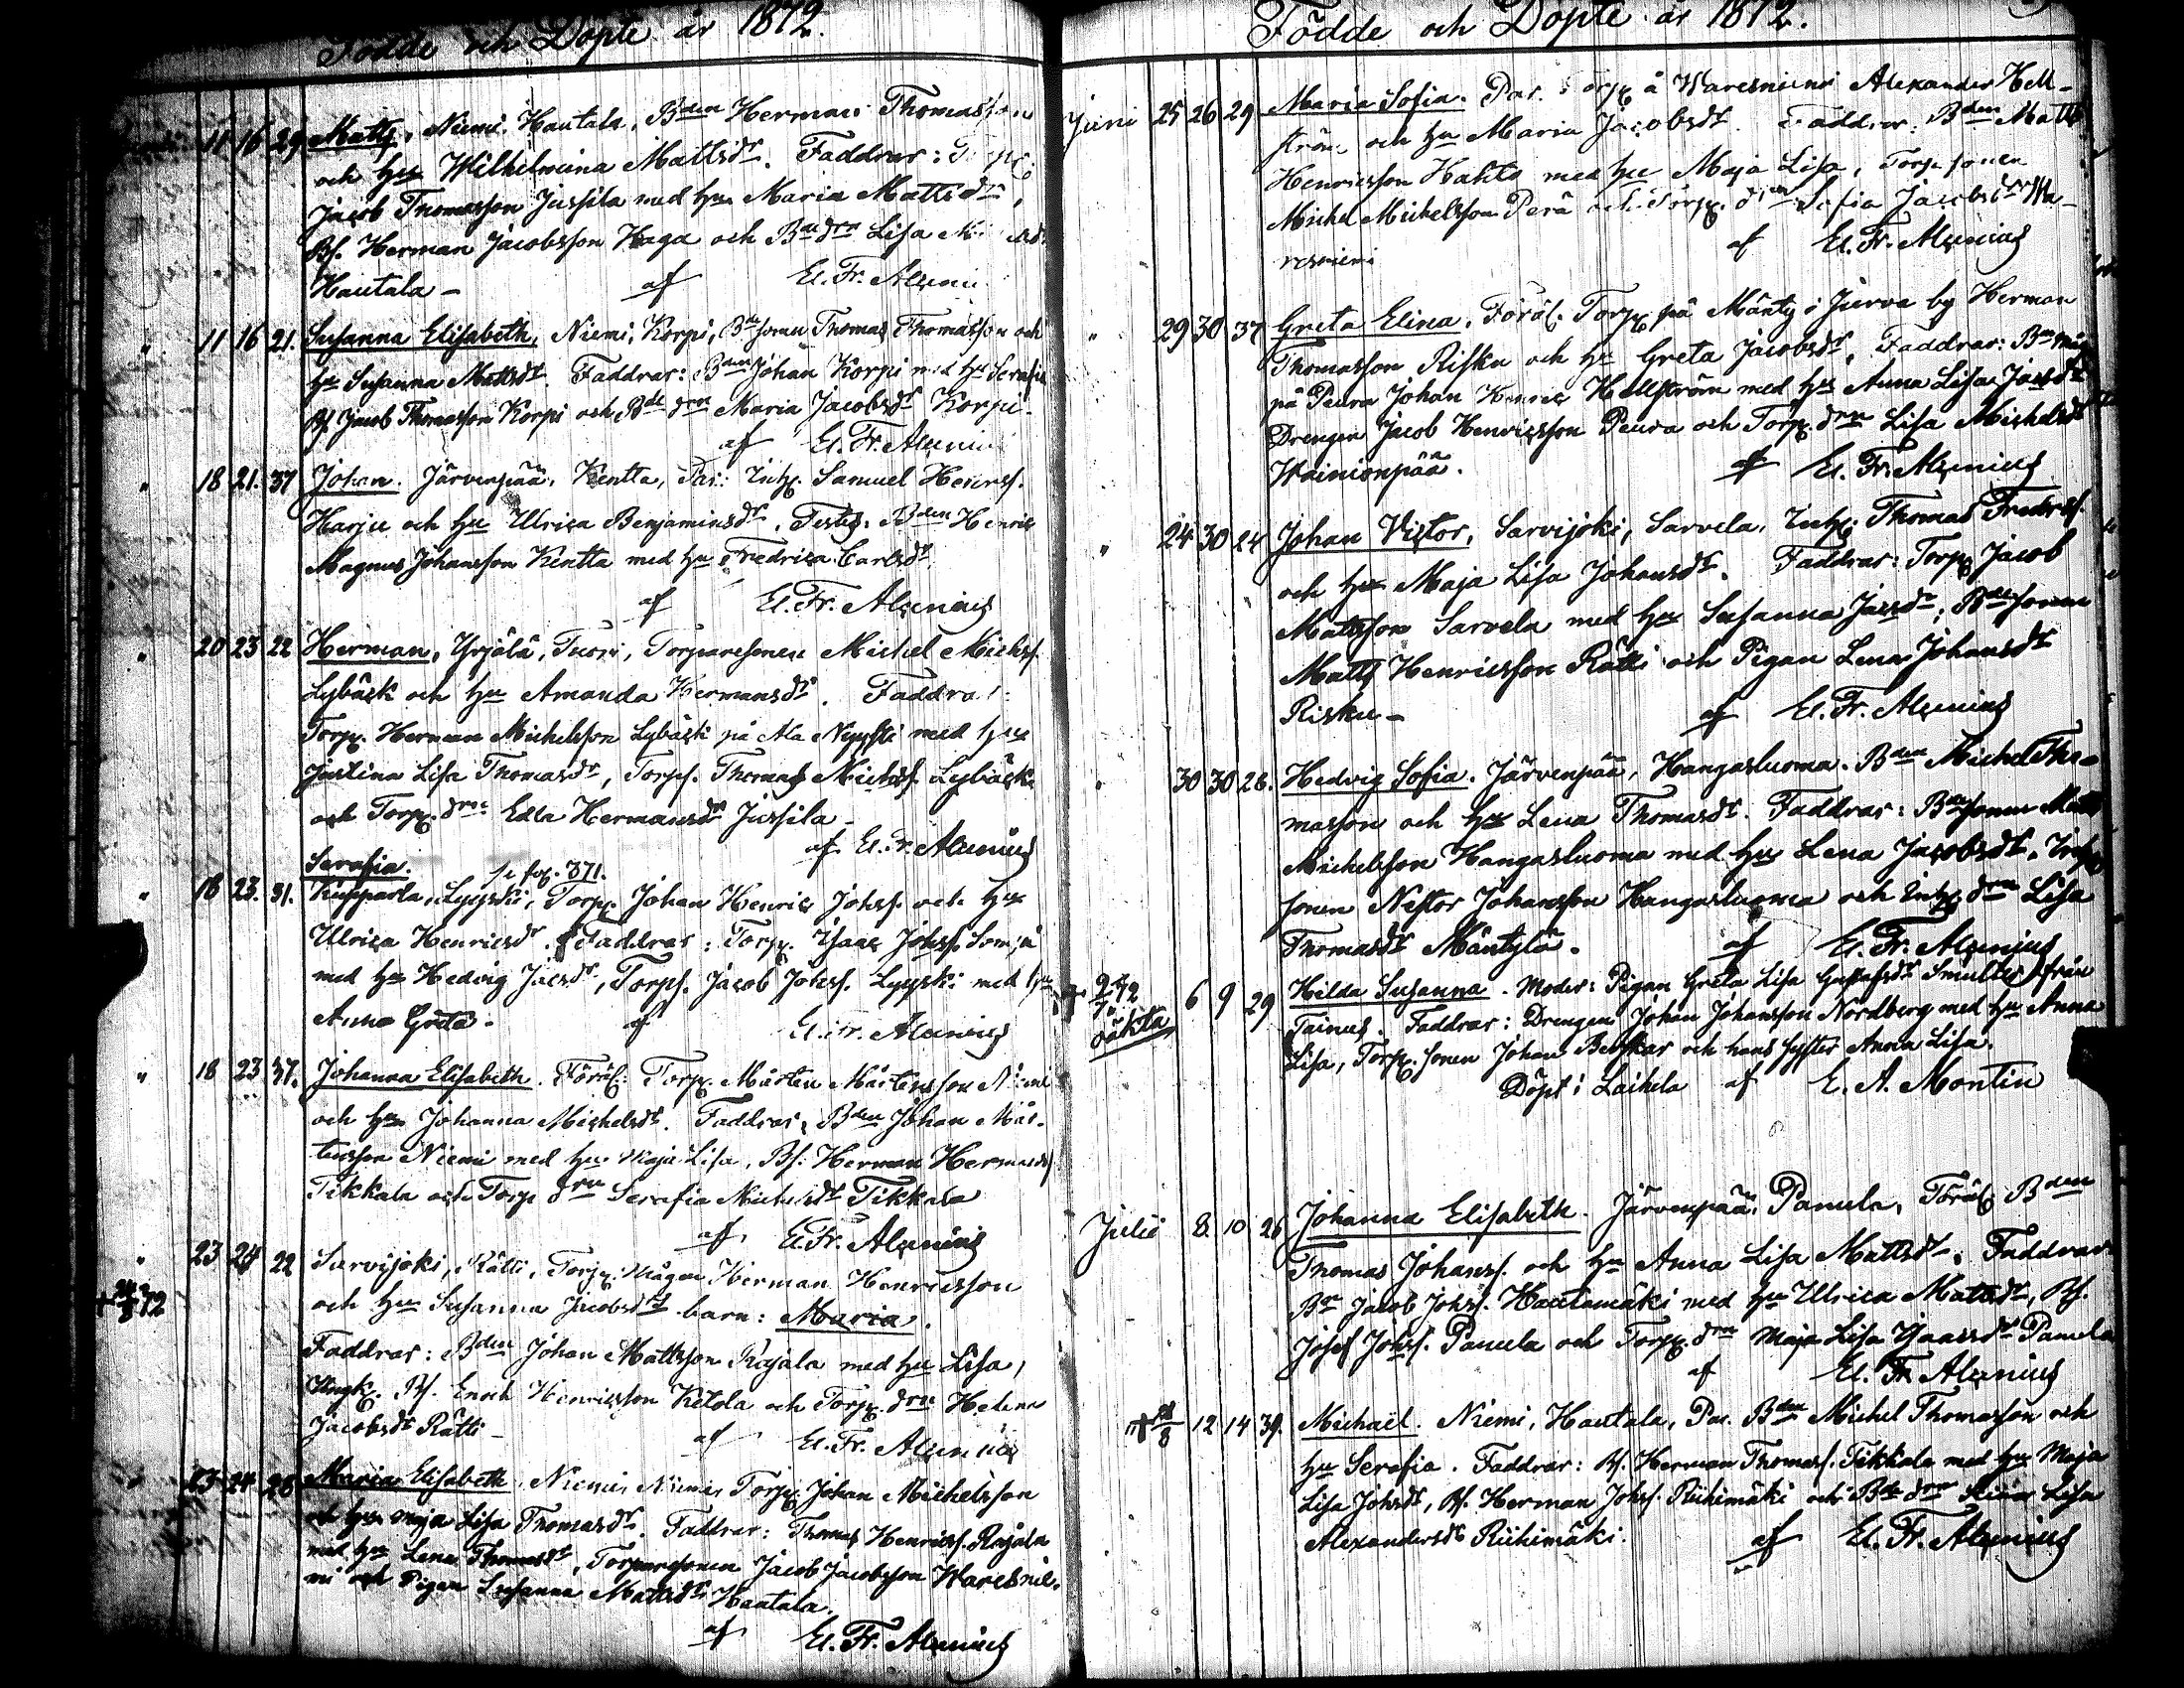 Födde och Döpte år 1872.
11 16 29 Matts, Niemi, Hautala, Bden Herman Thomasson
och hu Wilhelmina Mattsdr. Faddrar:
Jacob Thomasson Jussila med hu Maria Mattsdr,
Bs. Herman Jacobsson Haga och Bdedrn Lisa
Hautala - af El. Fr. Alcenius
" 11 16 21. Susanna Elisabeth, Niemi, Korpi, Bdesonen Thomas Thomasson och
hu Susanna Mattsdr. Faddrar: Bden Johan Korpi med hu Serafia
Bs. Jacob Thomasson Korpi och Bdedrn Maria Jacobsdr Korpi.
af El. Fr. Alcenius
" 18 21. 37 Johan. Järvenpää, Kentta, Par: Inh. Samuel Henrss.
Harju och hu Ulrica Benjaminsdr. Testes: Bden Henric
Magnus Johansson Kentta med hu Fredrica Carlsdr.
af El. Fr. Alcenius
" 20 23 22 Herman, Yrjälä, Tuori, Torparesonen Michel Michss.
Lybäck och hu Amanda Hermansdr. Faddrar:
Torp. Herman Michelsson Lybäck på Ala Nyysti med hu
Justina Lisa Thomasdr, Torps. Thomas Michss. Lybäck
och Torp.drn Edla Hermansdr Jussila -
af El. Fr. Alcenius
Serafia. se pag. 371.
" 18 23. 31. Kupparla, Lyyski, Torp. Johan Henric Johss. och hu
Ulrica Henricsdr. Faddrar: Torp. Isaac Johss.
med hu Hedvig Jacsdr, Torps. Jacob Johss. Lyyski med hu
Anna Greta. af El. Fr. Alcenius
" 18 23 37. Johanna Elisabeth. Föräl: Torp. Mårten Mårtensson Niemi
och hu Johanna Michelsdr. Faddrar: Bden Johan Mår-
tensson Niemi med hu Maja Lisa, Bs. Herman Hermanss.
Tikkala och Torp drn Serafia Michelsdr Tikkala
af El. Fr. Alcenius
" 23 24 22 Sarvijoki, Rätti, Torp. mågen Herman Henricsson
72 och hu Susanna Jacobsdr barn: Maria.
Faddrar: Bden Johan Mattsson Rajala med hu Lisa,
Ungk. Bs. Enoch Henricsson Ketola och Torp.drn Helena
Jacobsdr Rätti - af El. Fr. Alcenius
23 24 28 Maria Elisabeth, Niemi, Niemi, Torp. Johan Michelsson
och hu Maja Lisa Thomasdr. Faddrar: Thomas Henricss. Rajala
med hu Lena Thomasdr, Torparesonen Jacob Jacobsson Waresnie-
mi och Pigan Susanna Mattsdr Hautala.
af El. Fr. Alcenius
Födde och Döpte år 1872.
Juni 25 26 29 Maria Sofia. Par. Torp. å Waresniemi Alexander Hell-
ström och hu Maria Jacobsdr. Faddrar: Bden Matts
Henricsson Hakto med hu Maja Lisa, Torp.sonen
Michel Michelsson Perä och Torp.drn Sofia Jacobsdr Wa-
resniemi af El. Fr. Alcenius
" 29 30 37 Greta Elina, Föräl. Torp. på Mänty i Jurva by Herman
Thomasson Risku och hu Greta Jacobsdr, Faddrar: Bn måg
på Peura Johan Henric Hellström med hu Anna Lisa Jacsdr
Drengen Jacob Henricsson Peura och Torp.drn Lisa Michelsdr
Wainionpää. af El. Fr. Alcenius
" 24 30 24 Johan Victor, Sarvijoki, Sarvela, Inh: Thomas Fredrss.
och hu Maja Lisa Johansdr. Faddrar: Torp. Jacob
Mattsson Sarvela med hu Susanna Jacsdr; Bdesonen
Matts Henricsson Rätti och Pigan Lena Johansdr
Risku - af El. Fr. Alcenius
30 30 28. Hedvig Sofia. Järvenpää, Hangasluoma. Bden Michel Tho-
masson och hu Lena Thomasdr. Faddrar: Bdesonen Matts
Michelsson Hangasluoma med hu Lena Jacobsdr, Inh.
sonen Nestor Johansson Hangasluoma och Inh.drn Lisa
Thomasdr Mäntylä. af El. Fr. Alcenius
72 oäkta 6 9 29 Hilda Susanna. Moder: Pigan Greta Lisa Gustafsdr Smulter från
Tainus. Faddrar: Drengen Johan Johansson Nordberg med hu Anna
Lisa, Torp. sonen Johan Berskar och hans syster Anna Lisa.
Döpt i Laihela af E. A. Montin
Julii 8 10 26 Johanna Elisabeth. Järvenpää, Panula, Föräl. Bden
Thomas Johanss. och hu Anna Lisa Mattsdr. Faddrar
Bn Jacob Johss. Hautamäki med hu Ulrica Mattsdr, Bs.
Josef Johss. Panula och Torp.drn Maja Lisa Isaacsdr Panula
af El. Fr. Alcenius
12 14 39. Michaël. Niemi, Hautala, Par. Bden Michel Thomasson och
hu Serafia. Faddrar: Bs. Herman Thomass. Tikkala med hu Maja
Lisa Johsdr, Bs. Herman Johss. Riihimäki och Bdedrn Lisa
Alexandersdr Riihimäki. af El. Fr. Alcenius